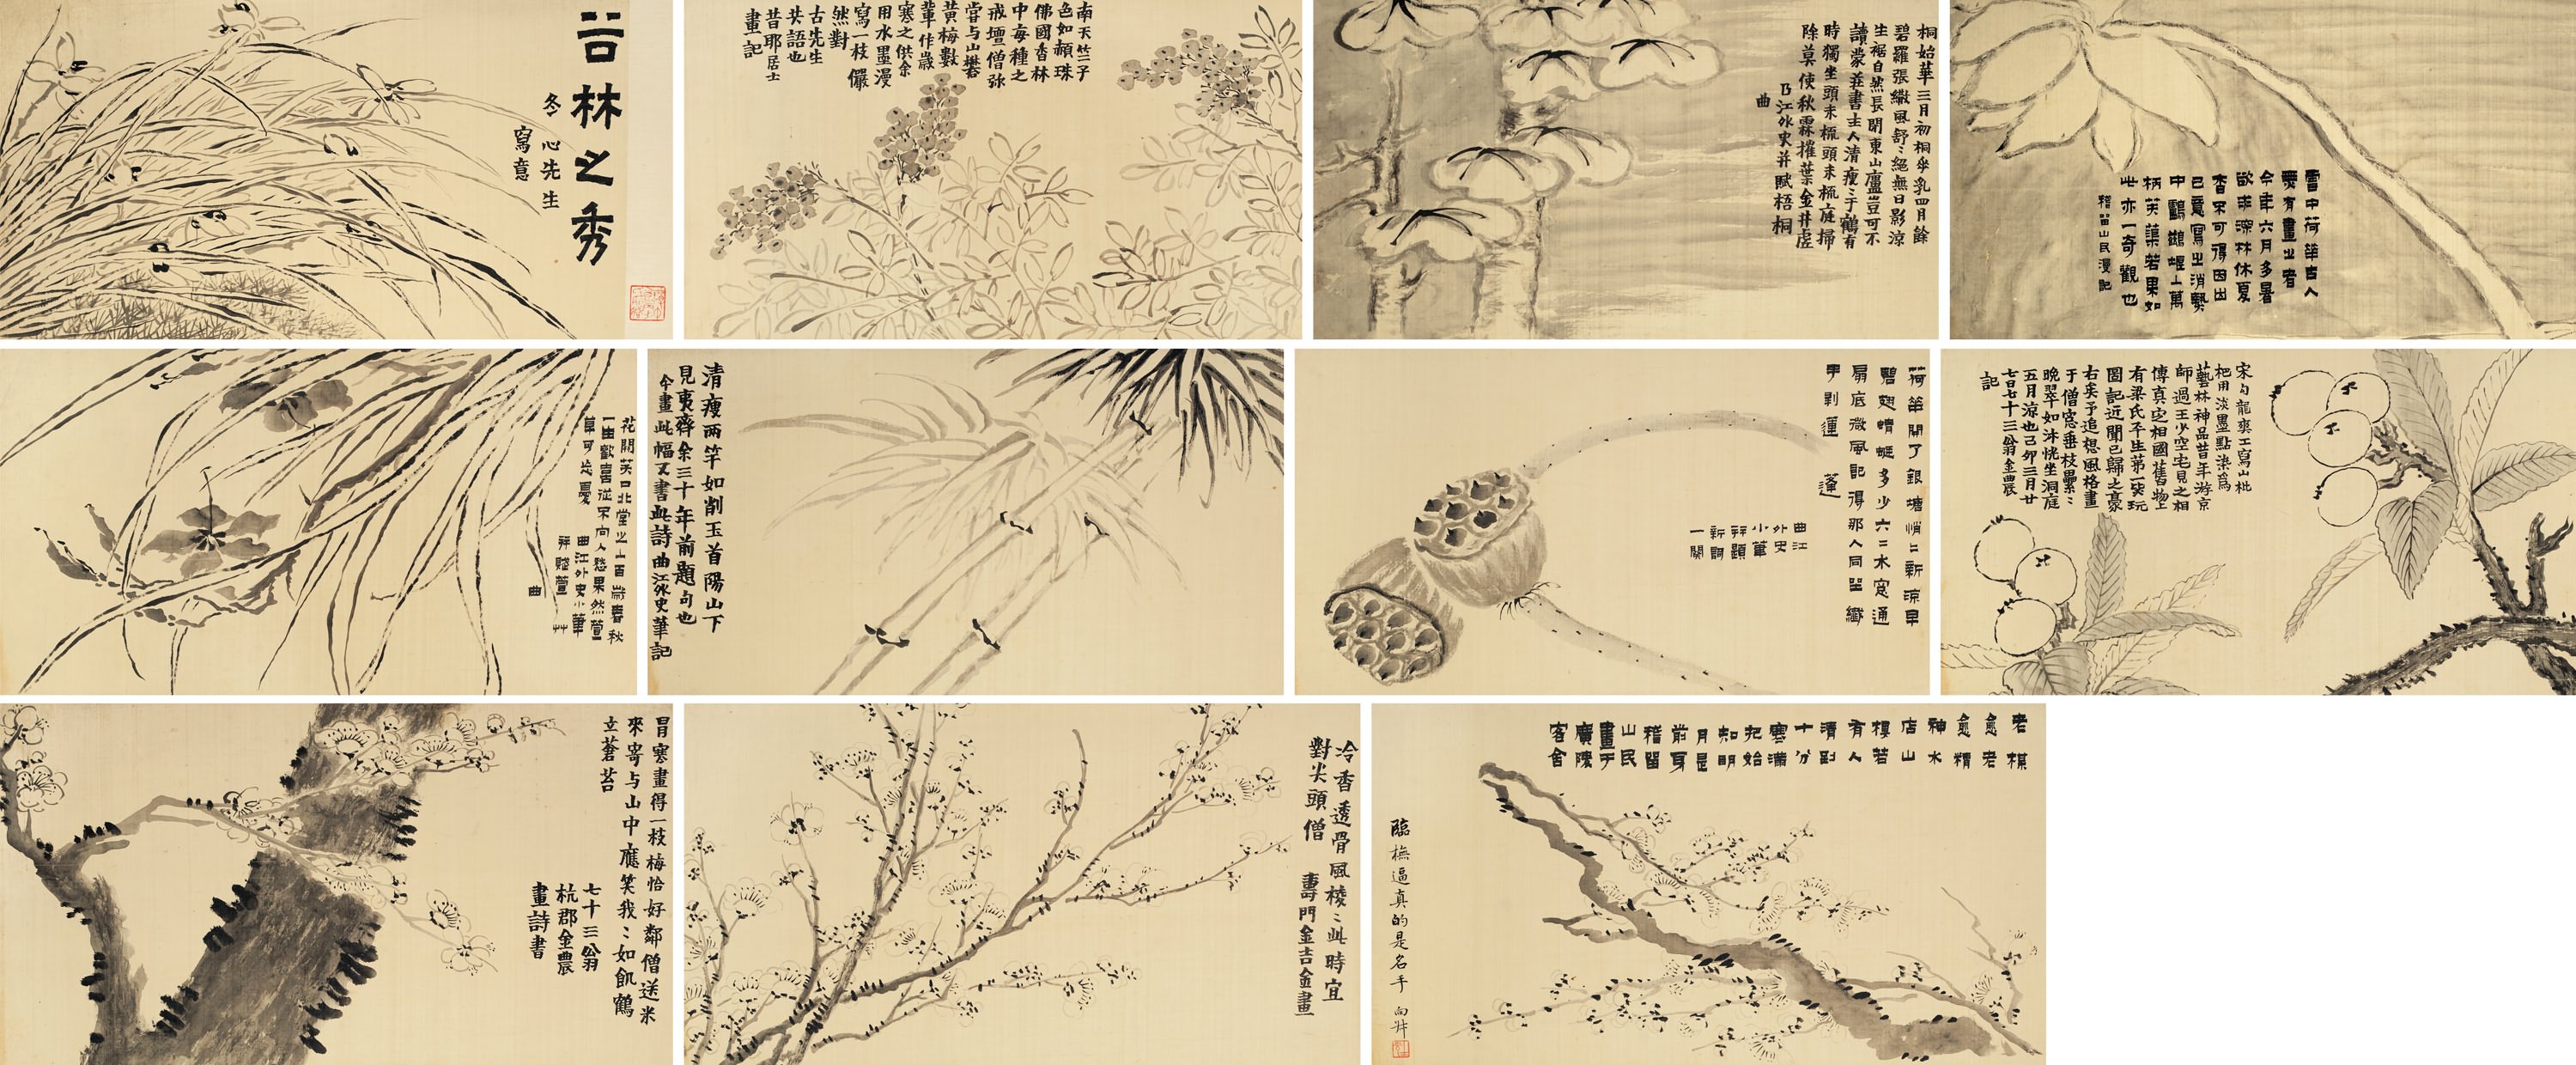 林之秀
冬心先生
寫意
南天竺子
色如赬珠
佛國香林
中每種之
戒壇僧弥
嘗与山礬
黄梅數
輩作歲
寒之供余
用水墨漫
寫一枝儼
然對
古先生
共語也
昔耶居士
畫記
桐始華三月初桐孚乳四月餘
碧羅張繖風舒〻絕無日影涼
生裾自然長閉東山廬豈可不
讀蒙莊書主人清瘦〻于鶴有
時獨坐頭未梳頭未梳庭掃
除莫使秋霖摧葉金井虛
江外史并賦梧桐
曲
雪中荷華古人
有畫之者
今年六月多暑
欲求深林休夏
杳不可得因出
己意寫之消
中鷗鷺堰上萬
柄芙蕖若果如
此亦一奇觀也
稽留山民漫記
花開笑口北堂之上百歲春秋
一生歡喜從不向人愁果然萱
草可忘憂
曲江外史小筆
并題萱艸
曲
清瘦兩竿如削玉首陽山下
見夷齊余三十年前題句也
今畫此幅又書此詩曲江外史筆記
荷華開了銀塘悄〻新涼早
碧翅蜻蜓多少六〻水窗通
扇底微風記得那人同坐纖
手剝蓮蓬
曲江
外史
小筆
并題
新詞
一闋
宋勾龍爽工寫山枇
杷用淡墨點染爲
藝林神品昔年游京
師過王少空宅見之相
傳真定相國舊物上
有梁氏平生第一玩
圖記近聞已歸之豪
右矣予追想風格畫
于僧窓垂枝纍〻
晚翠如沐恍坐洞庭
五月涼也己卯三月廿
七日七十三翁金農
記
冒寒畫得一枝梅恰好鄰僧送米
來寄与山中應笑我〻如飢鶴
立蒼苔
七十三翁
杭郡金農
畫詩書
冷香透骨風稜〻此時宜
對尖頭僧 壽門金吉金畫
老梅
愈老
愈精
神水
店山
樓若
有人
清到
十分
寒滿
把始
知明
月是
前身
稽留
山民
畫于
廣陵
客舍
臨橅逼真的是名手